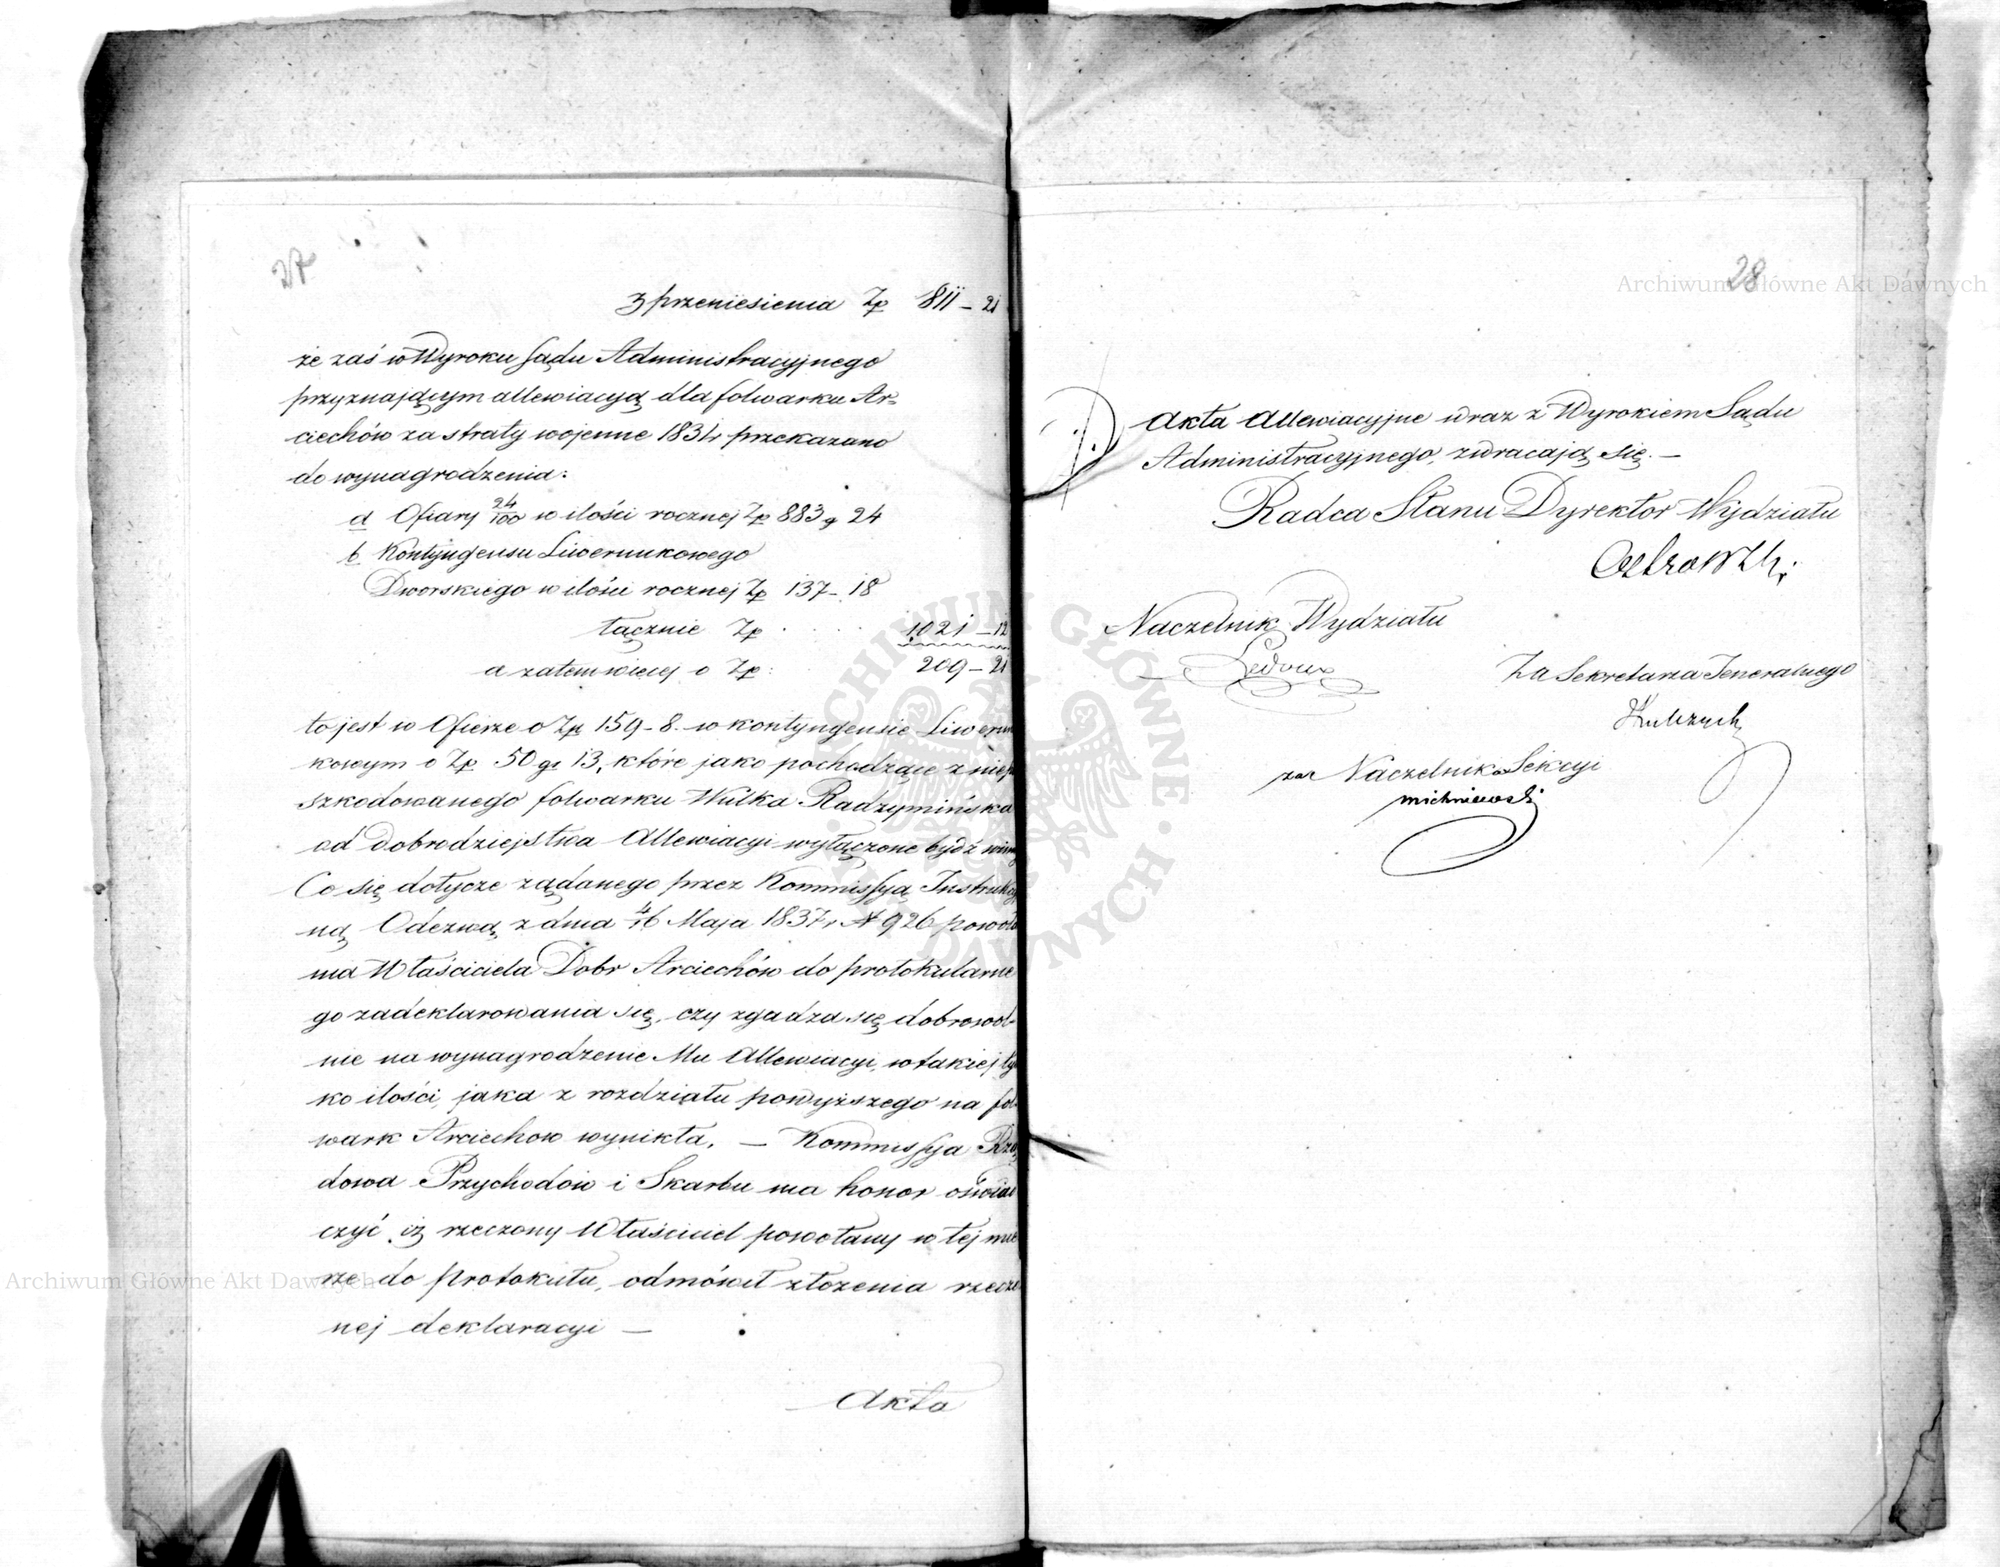 27
z przeniesienia Zp 811 – 21
że zaś w Wyroku Sądu Administracyjnego
przyznającym allewiacyą dla folwarku Ar-
ciechów za straty wojenne 1831 r przekazano
do wynagrodzenia:
a Ofiary 24/100 w ilości rocznej Zp 883 g 24
b Kontyngensu Liwerunkowego
Dworskiego w ilości rocznej Zp 137 – 18
łącznie Zp . . . . 1021 – 12
a zatem więcej o Zp: 209 – 21
to jest w Ofierze o Zp 159 – 8. w kontyngensie Liwerun
kowym o Zp 50 gr 13, które jako pochodzące z niep
szkodowanego folwarku Wulka Radzymińska
od Dobrodziejstwa Allewiacyi wyłączone bydź winny
Co się dotycze żądanego przez Kommissyą Instrukcyj
ną Odezwą z dnia 4/16 Maja 1837 r N 926 powoła
nia Właściciela Dobr Arciechów do protokularne
go zadeklarowania się, czy zgadza się dobrowol-
nie na wynagrodzenie Mu Allewiacyi, w takiej tyl
ko ilości, jaka z rozdziału powyższego na fol
wark Arciechow wynikła. – Kommissya Rzą
dowa Przychodów i Skarbu ma honor oświad
czyć iż rzeczony Właściciel powołany w tej mie
rze do protokułu, odmówił złożenia rzeczo
nej deklaracyi –
Akta
28
Akta Allewiacyjne wraz z Wyrokiem Sądu
Administracyjnego, zwracają się. –
Radca Stanu Dyrektor Wydziału
Ostrowski
Naczelnik Wydziału
Ledoux
Za Sekretarza Jeneralnego
za Naczelnika Sekcyi
Michniewski
Archiwum Główne Akt Dawnych
Archiwum Główne Akt Dawnych
ARCHIWUM GŁÓWNE AKT DAWNYCH